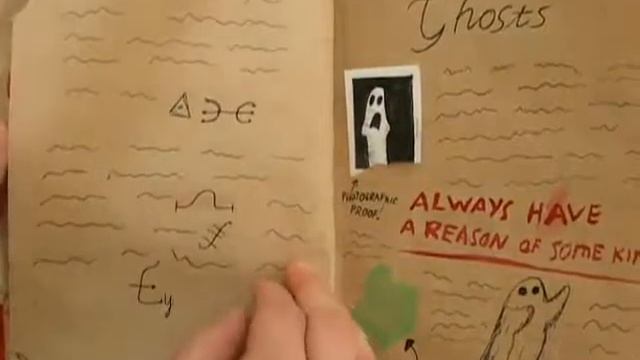 Ghosts
PHOTOGRAPHIC
PROOF!
ALWAYS HAVE
A REASON OF SOME KIN